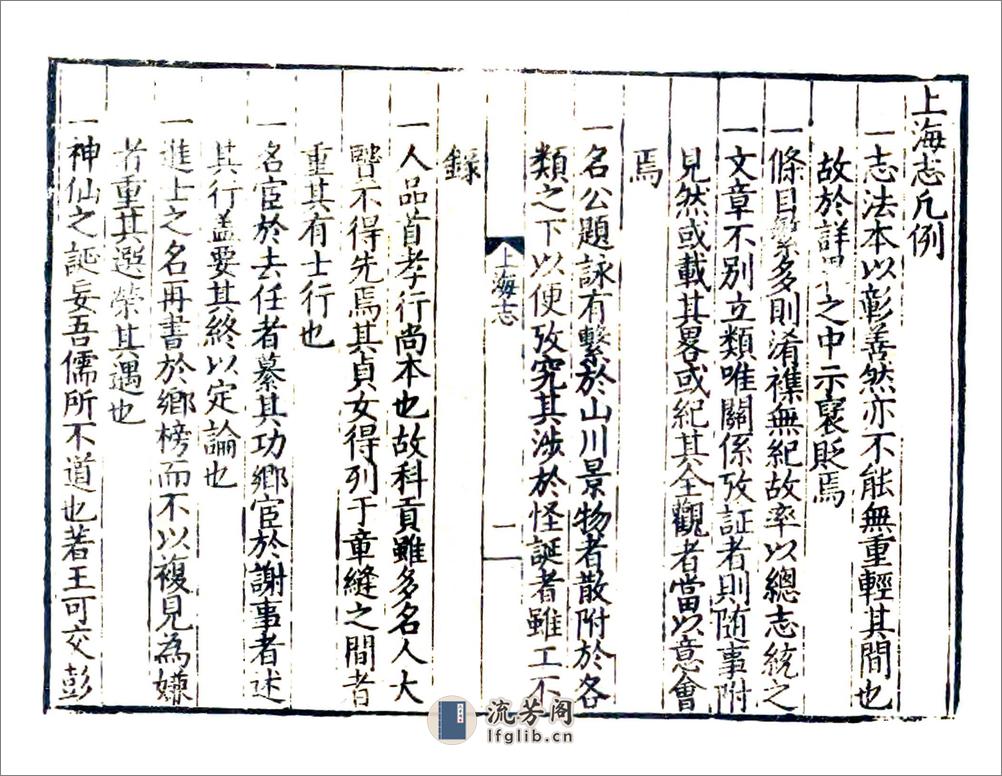 上海志凡例
一志法本以彰善然亦不能無重輕其間也
故於詳之中示褒貶焉
一條目繁多則淆襍無紀故率以總志統之
一文章不別立類唯關係攷証者則随事附
見然或載其畧或紀其全觀者當以意會
焉
一名公題詠有繫於山川景物者散附於各
類之下以便攷究其涉於怪誕者雖工不
錄
上海志
一
一人品首孝行尚本也故科貢雖多名人大
不得先焉其貞女得列于章縫之間者
重其有士行也
一名宦於去任者纂其功鄉宦於謝事者述
其行盖要其終以定論也
一進士之名再書於鄉榜而不以複見為嫌
者重其選榮其遇也
一神仙之誕妄吾儒所不道也若王可交彭
流芳阁
lfglib.cn